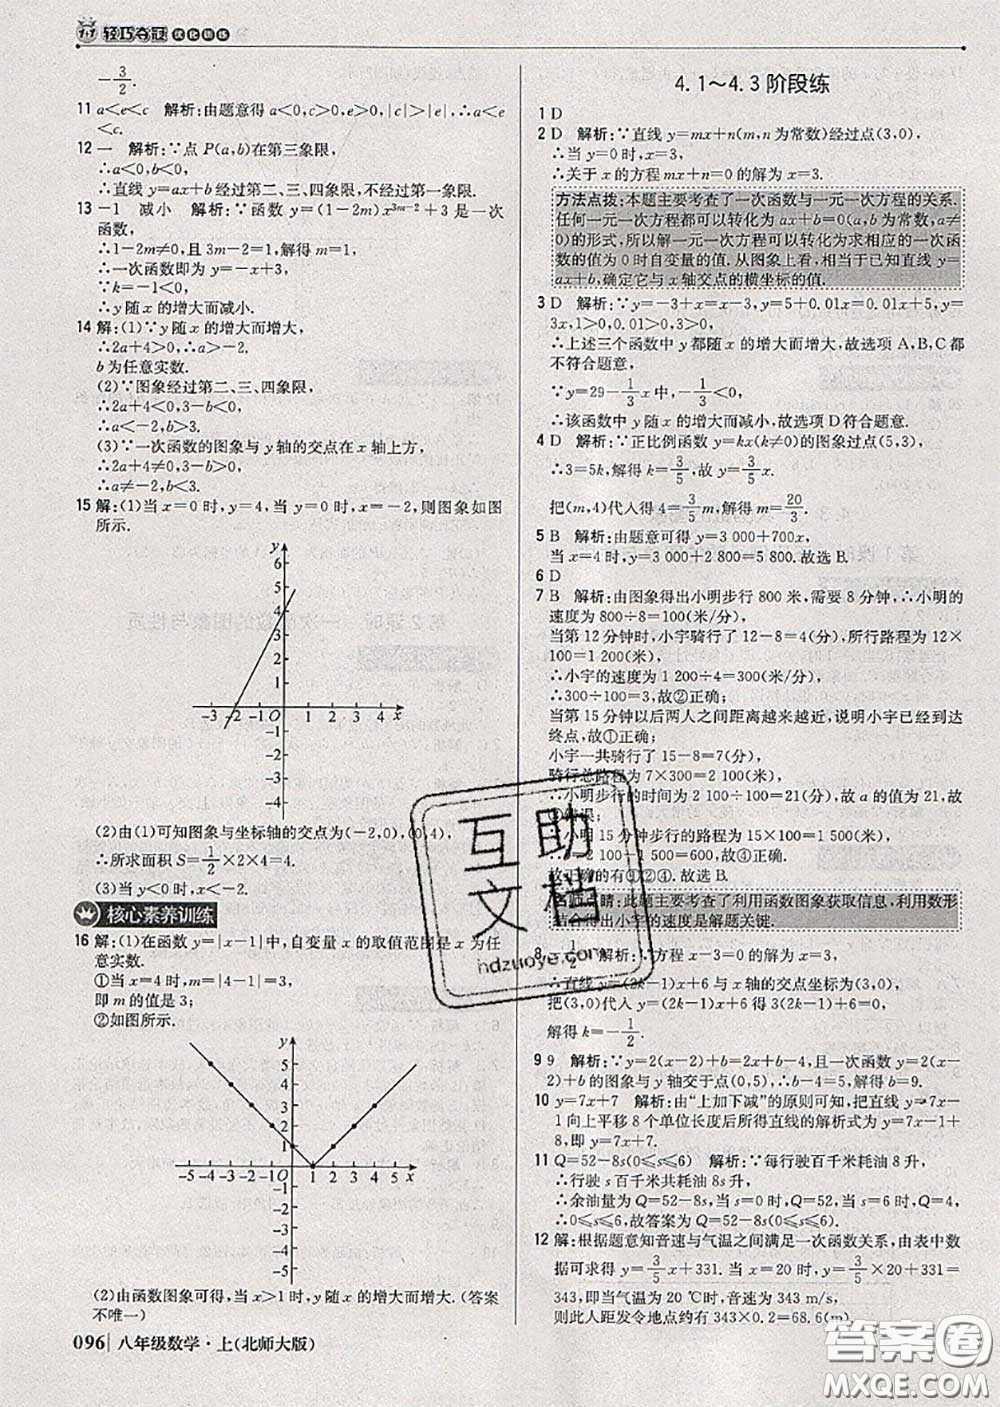 1+1 轻巧夺冠 优化训练
-3/2.
11 a<e<c 解析:由题意得 a<0,c>0,e>0,|c|>|e|,∴a<e<
c.
12 一 解析:∵点 P(a,b)在第三象限,
∴a<0,b<0,
∴直线 y=ax+b 经过第二、三、四象限,不经过第一象限.
13 -1 减小 解析:∵函数 y=(1-2m)x^{3m-2}+3 是一次
函数,
∴1-2m≠0,且 3m-2=1,解得 m=1,
∴一次函数即为 y=-x+3,
∵k=-1<0,
∴y 随 x 的增大而减小.
14 解:(1)∵y 随 x 的增大而增大,
∴2a+4>0,∴a>-2.
b 为任意实数.
(2)∵图象经过第二、三、四象限,
∴2a+4<0,3-b<0,
∴a<-2,b>3.
(3)∵一次函数的图象与 y 轴的交点在 x 轴上方,
∴2a+4≠0,3-b>0,
∴a≠-2,b<3.
15 解:(1)当 x=0 时,y=4,当 y=0 时,x=-2,则图象如图
所示.
y
6
5
4
3
2
1
-3 -2 -1 O 1 2 3 4 x
-1
-2
-3
-4
(2)由(1)可知图象与坐标轴的交点为(-2,0),(0,4),
∴所求面积 S=1/2×2×4=4.
(3)当 y<0 时,x<-2.
核心素养训练
16 解:(1)在函数 y=|x-1|中,自变量 x 的取值范围是 x 为任
意实数.
①当 x=4 时,m=|4-1|=3,
即 m 的值是 3;
②如图所示.
y
6
5
4
3
2
1
-5 -4 -3 -2 -1 O 1 2 3 4 5 x
-1
-2
-3
-4
-5
(2)由函数图象可得,当 x>1 时,y 随 x 的增大而增大.(答案
不唯一)
096 八年级数学·上(北师大版)
4.1～4.3 阶段练
1 D
2 D 解析:∵直线 y=mx+n(m,n 为常数)经过点(3,0),
∴当 y=0 时,x=3,
∴关于 x 的方程 mx+n=0 的解为 x=3.
方法点拨:本题主要考查了一次函数与一元一次方程的关系.
任何一元一次方程都可以转化为 ax+b=0(a,b 为常数,a≠
0)的形式,所以解一元一次方程可以转化为求相应的一次函
数的值为 0 时自变量的值.从图象上看,相当于已知直线 y=
ax+b,确定它与 x 轴交点的横坐标的值.
3 D 解析:∵y=-3+x=x-3,y=5+0.01x=0.01x+5,y=
3x,1>0,0.01>0,3>0,
∴上述三个函数中 y 都随 x 的增大而增大,故选项 A,B,C 都
不符合题意.
∵y=29-1/3x 中,-1/3<0,
∴该函数中 y 随 x 的增大而减小,故选项 D 符合题意.
4 D 解析:∵正比例函数 y=kx(k≠0)的图象过点(5,3),
∴3=5k,解得 k=3/5,故 y=3/5x.
把(m,4)代入得 4=3/5m,解得 m=20/3.
5 B 解析:由题意可得 y=3 000+700x,
当 x=4 时,y=3 000+2 800=5 800.故选 B.
6 D
7 B 解析:由图象得出小明步行 800 米,需要 8 分钟,∴小明的
速度为 800÷8=100(米/分),
当第 12 分钟时,小宇骑行了 12-8=4(分),所行路程为 12
×100=1 200(米),
∴小宇的速度为 1 200÷4=300(米/分),
∴300÷100=3,故②正确;
当第 15 分钟以后两人之间距离越来越近,说明小宇已到达
终点,故①正确;
小宇一共骑行了 15-8=7(分),
骑行总路程为 7×300=2 100(米),
∴小明步行的时间为 2 100÷100=21(分),故 a 的值为 21,故
③错误;
∵小明 15 分钟步行的路程为 15×100=1 500(米),
∴b=2 100-1 500=600,故④正确.
故正确的有①②④.故选 B.
名师点睛:此题主要考查了利用函数图象获取信息,利用数形
结合得出小宇的速度是解题关键.
8 -1/2 解析:∵方程 的解为 x=3,
∴直线 y=(2k-1)x+6 与 x 轴的交点坐标为(3,0),
把(3,0)代入 y=(2k-1)x+6 得 3(2k-1)+6=0,
解得 k=-1/2.
9 9 解析:∵y=2(x-2)+b=2x+b-4,且一次函数 y=2(x-
2)+b 的图象与 y 轴交于点(0,5),∴b-4=5,解得 b=9.
10 y=7x+7 解析:由“上加下减”的原则可知,把直线 y=7x-
1 向上平移 8 个单位长度后所得直线的解析式为 y=7x-1+
8,即 y=7x+7.
11 Q=52-8s(0≤s≤6) 解析:∵每行驶百千米耗油 8 升,
∴行驶 s 百千米共耗油 8s 升,
∴余油量为 Q=52-8s,当 s=0 时,Q=52,当 s=6 时,Q=4,
∴0≤s≤6,故答案为 Q=52-8s(0≤s≤6).
12 解:根据题意知音速与气温之间满足一次函数关系,由表中数
据可求得 y=3/5x+331,当 x=20 时,y=3/5×20+331=
343,即当气温为 20 ℃时,音速为 343 m/s,
则此人距发令地点约有 343×0.2=68.6(m).
互助
文档
hdzuoye.com
答案圈
MXQE.COM